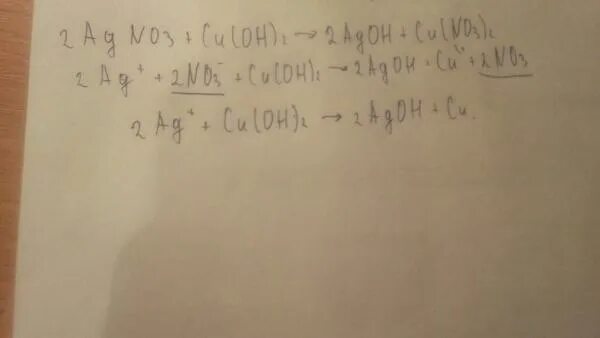 2 Ag NO3 + Cu(OH)2 → 2AgOH + Cu(NO3)2
2 Ag⁺ + 2NO3⁻ + Cu(OH)2 → 2AgOH + Cu⁺⁺ + 2NO3
2 Ag⁺ + Cu(OH)2 → 2AgOH + Cu